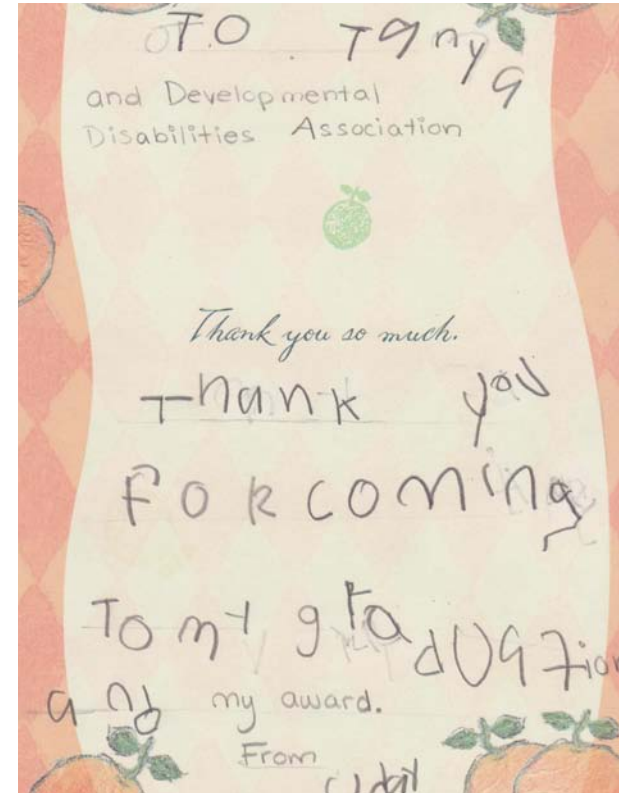 TO. Tanya
and Developmental
Disabilities Association
Thank you so much.
Thank you
FOR coming
To my graduation
and my award.
From